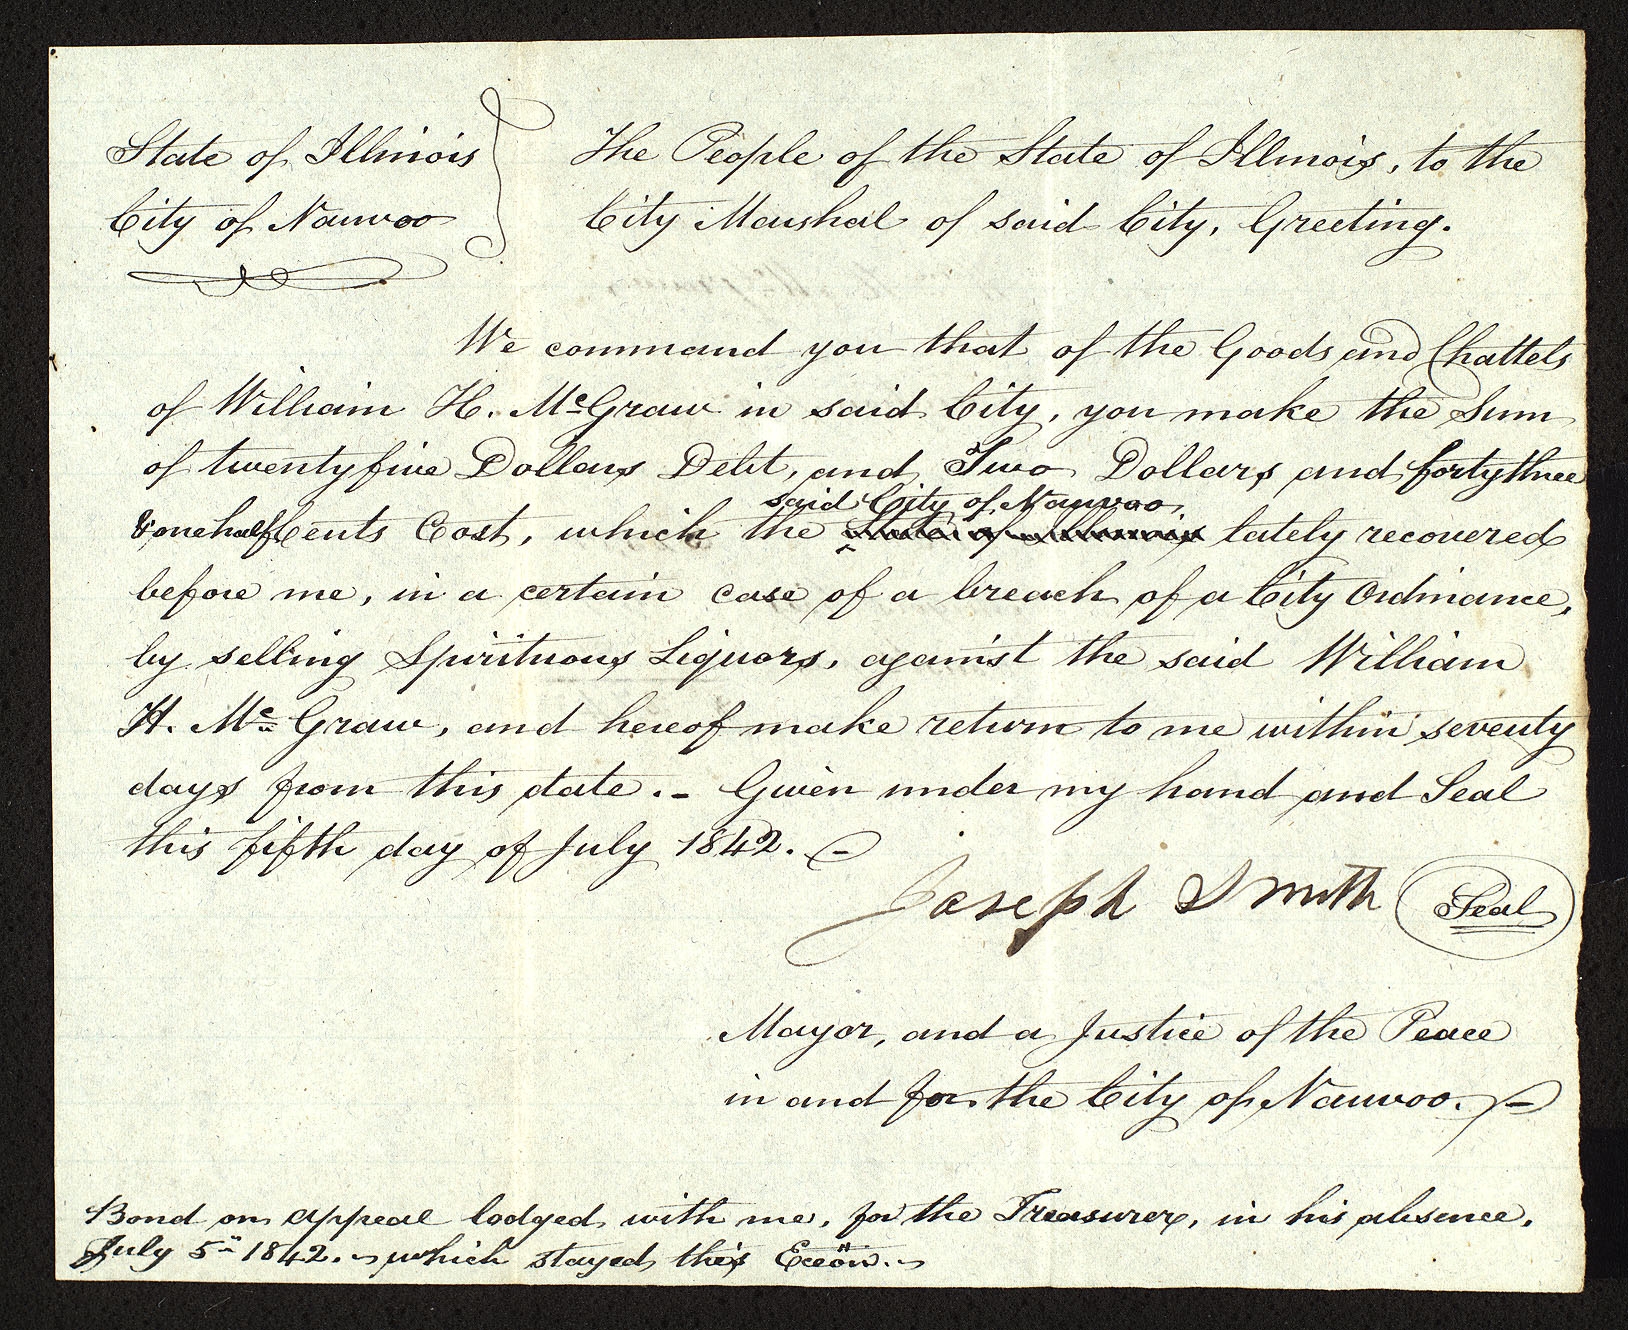 State of Illinois } The People of the State of Illinois, to the
City of Nauvoo } City Marshal of said City, Greeting.
We command you that of the Goods and Chattels
of William H. McGraw in said City, you make the Sum
of twentyfive Dollars Debt, and Two Dollars and fortythree
said City of Nauvoo
& onehalf Cents Cost, which the ^ State of Illinois lately recovered
before me, in a certain case of a breach of a City Ordinance,
by selling Spirituous Liquors, against the said William
H. Mc Graw, and hereof make return to me within seventy
days from this date. – Given under my hand and Seal
this fifth day of July 1842. –
Joseph Smith Seal
Mayor, and a Justice of the Peace
in and for the City of Nauvoo. –
Bond on appeal lodged with me, for the Treasurer, in his absence,
July 5" 1842. ~ which stayed this Exeön. ~